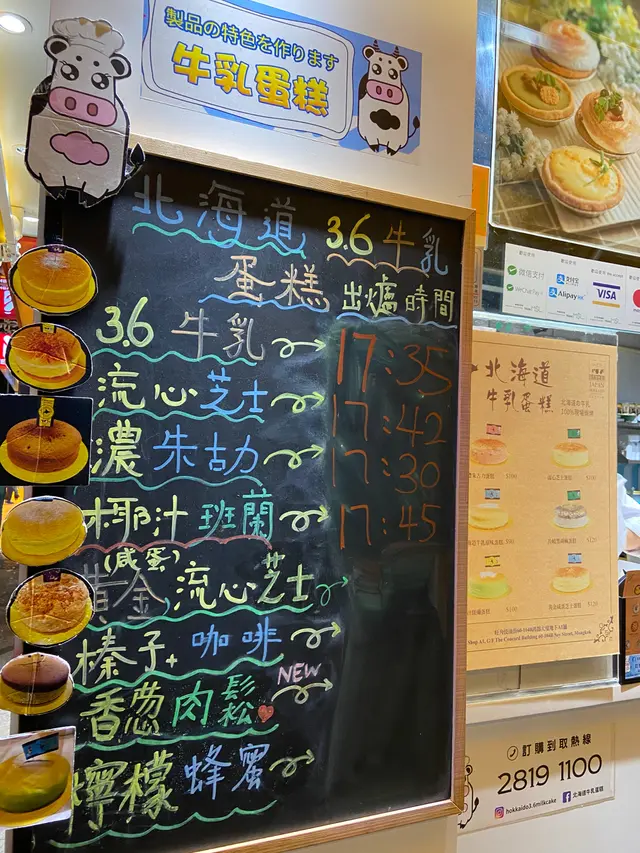 製品の特色を作ります
牛乳蛋糕
北海道
3.6牛乳
蛋糕
出爐時間
3.6 牛乳 17:35
流心芝士 17:42
濃朱古力 17:30
椰汁班蘭 17:45
(咸蛋)
黃金流心芝士
榛子+咖啡
NEW
香葱肉鬆
檸檬蜂蜜
微信支付
WeChat Pay
支付宝
Alipay
VISA
北海道
牛乳蛋糕
訂購到取熱線
2819 1100
hokkaido3.6milkcake
北海道牛乳蛋糕